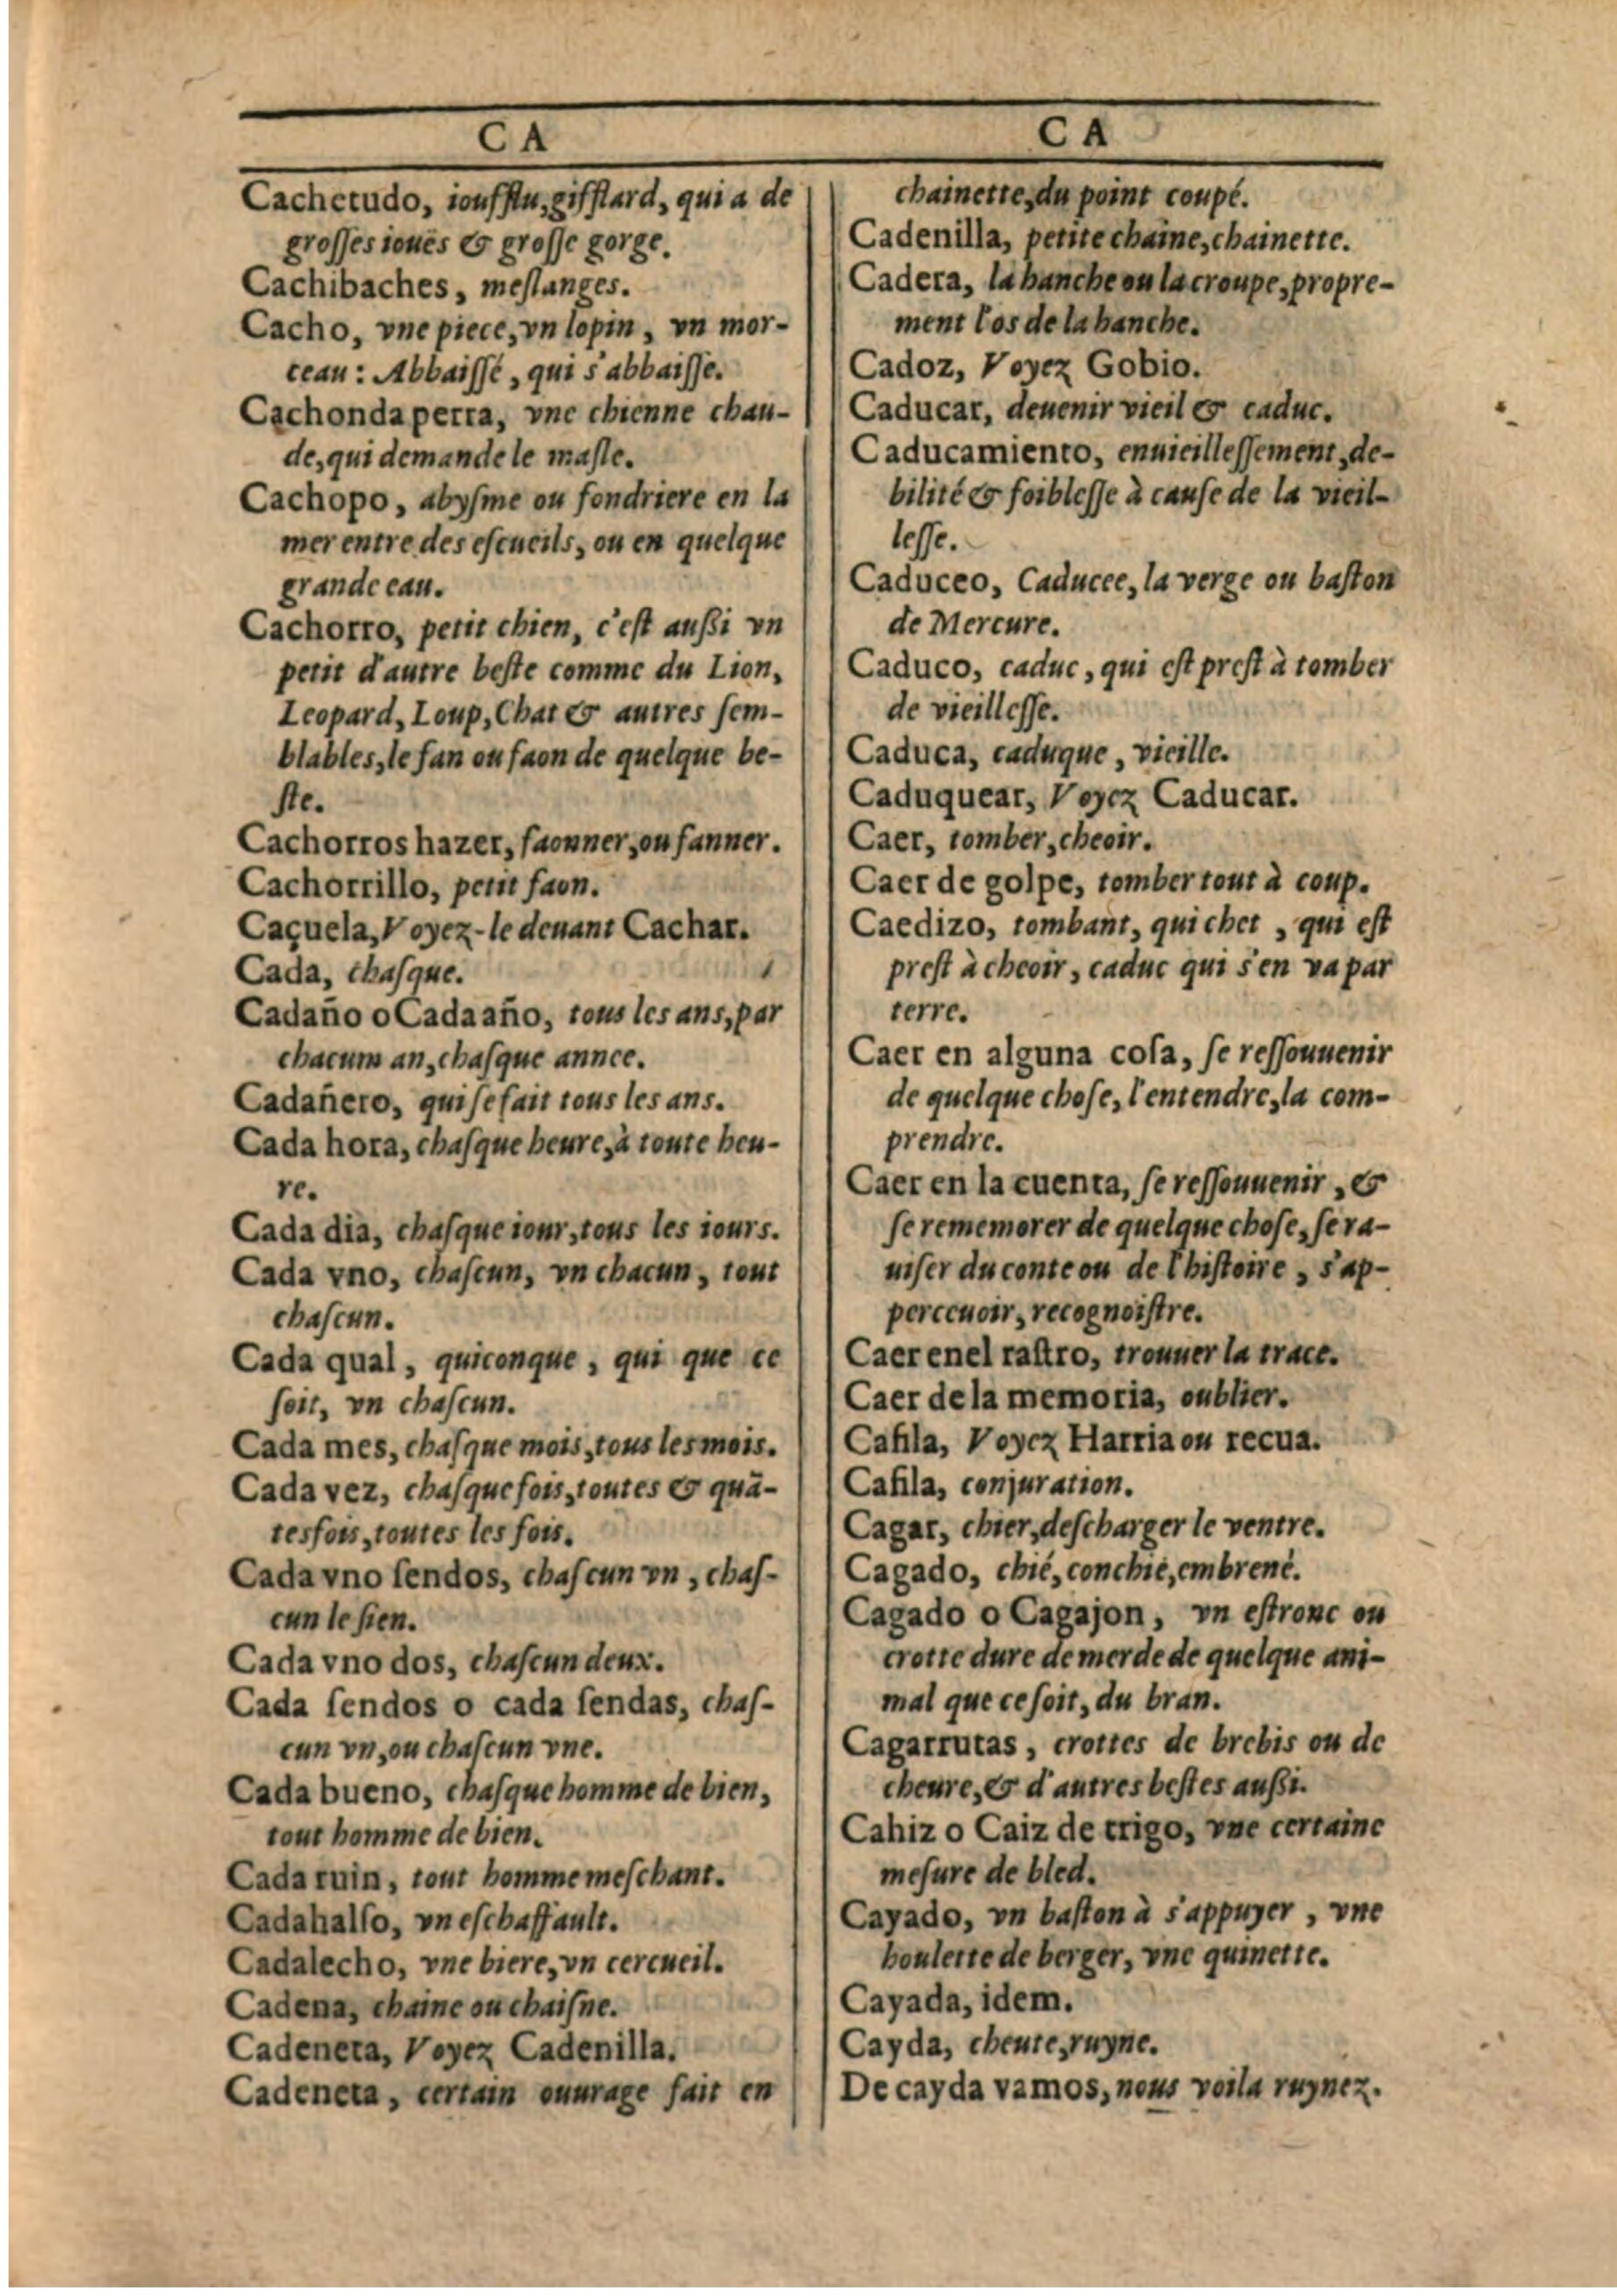 CA
Cachetudo, ioufflu, gifflard, qui a de
grosses iouës & grosse gorge.
Cachibaches, meslanges.
Cacho, vne piece, vn lopin, vn mor-
ceau: Abbaissé, qui s'abbaisse.
Cachonda perra, vne chienne chau-
de, qui demande le masle.
Cachopo, abysme ou fondriere en la
mer entre des escueils, ou en quelque
grande eau.
Cachorro, petit chien, c'est aussi vn
petit d'autre beste comme du Lion,
Leopard, Loup, Chat & autres sem-
blables, le fan ou faon de quelque be-
ste.
Cachorros hazer, faonner, ou fanner.
Cachorrillo, petit faon.
Caçuela, Voyez-le deuant Cachar.
Cada, chasque.
Cadaño o Cada año, tous les ans, par
chacum an, chasque annee.
Cadañero, qui se fait tous les ans.
Cada hora, chasque heure, à toute heu-
re.
Cada dia, chasque iour, tous les iours.
Cada vno, chascun, vn chacun, tout
chascun.
Cada qual, quiconque, qui que ce
soit, vn chascun.
Cada mes, chasque mois, tous les mois.
Cada vez, chasque fois, toutes & quã-
tesfois, toutes les fois.
Cada vno sendos, chascun vn, chas-
cun le sien.
Cada vno dos, chascun deux.
Cada sendos o cada sendas, chas-
cun vn, ou chascun vne.
Cada bueno, chasque homme de bien,
tout homme de bien.
Cada ruin, tout homme meschant.
Cadahalso, vn eschaffault.
Cadalecho, vne biere, vn cercueil.
Cadena, chaine ou chaisne.
Cadeneta, Voyez Cadenilla.
Cadeneta, certain ouurage fait en
CA
chainette, du point coupé.
Cadenilla, petite chaine, chainette.
Cadera, la hanche ou la croupe, propre-
ment l'os de la hanche.
Cadoz, Voyez Gobio.
Caducar, deuenir vieil & caduc.
Caducamiento, enuieillessement, de-
bilité & foiblesse à cause de la vieil-
lesse.
Caduceo, Caducee, la verge ou baston
de Mercure.
Caduco, caduc, qui est prest à tomber
de vieillesse.
Caduca, caduque, vieille.
Caduquear, Voyez Caducar.
Caer, tomber, cheoir.
Caer de golpe, tomber tout à coup.
Caedizo, tombant, qui chet, qui est
prest à cheoir, caduc qui s'en va par
terre.
Caer en alguna cosa, se ressouuenir
de quelque chose, l'entendre, la com-
prendre.
Caer en la cuenta, se ressouuenir, &
se rememorer de quelque chose, se ra-
uiser du conte ou de l'histoire, s'ap-
perceuoir, recognoistre.
Caer enel rastro, trouuer la trace.
Caer de la memoria, oublier.
Cafila, Voyez Harria ou recua.
Cafila, conjuration.
Cagar, chier, descharger le ventre.
Cagado, chié, conchié, embrené.
Cagado o Cagajon, vn estronc ou
crotte dure de merde de quelque ani-
mal que ce soit, du bran.
Cagarrutas, crottes de brebis ou de
cheure, & d'autres bestes aussi.
Cahiz o Caiz de trigo, vne certaine
mesure de bled.
Cayado, vn baston à s'appuyer, vne
houlette de berger, vne quinette.
Cayada, idem.
Cayda, cheute, ruyne.
De cayda vamos, nous voila ruynez.